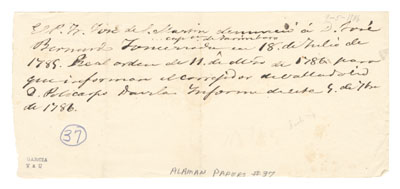 El P. Fr. José de S. Martin denunció á D. José
Bernardo Foncerrada en 18 de Julio de
1785. Real orden de 11 de de 1786 para
que informan el corregidor de Valladolid
D. Policarpo Davila Informe de este 5 de 7bre
de 1786.
37
GARCIA
ALAMAN PAPERS #37